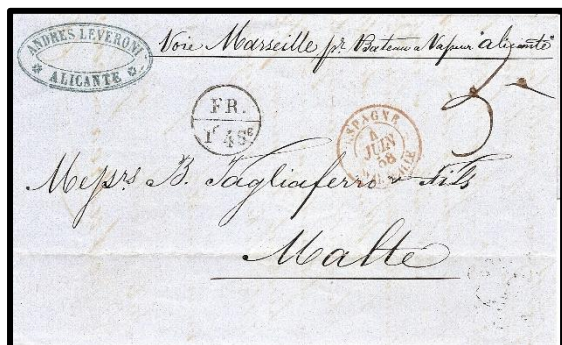 ANDRES LEVERONI
ALICANTE
Voie Marseille pr. Bateau a Vapeur "alicante"
FR.
1f 48c
ESPAGNE
4
JUIN
58
5
Messrs B. Tagliaferro & Fils
Malte